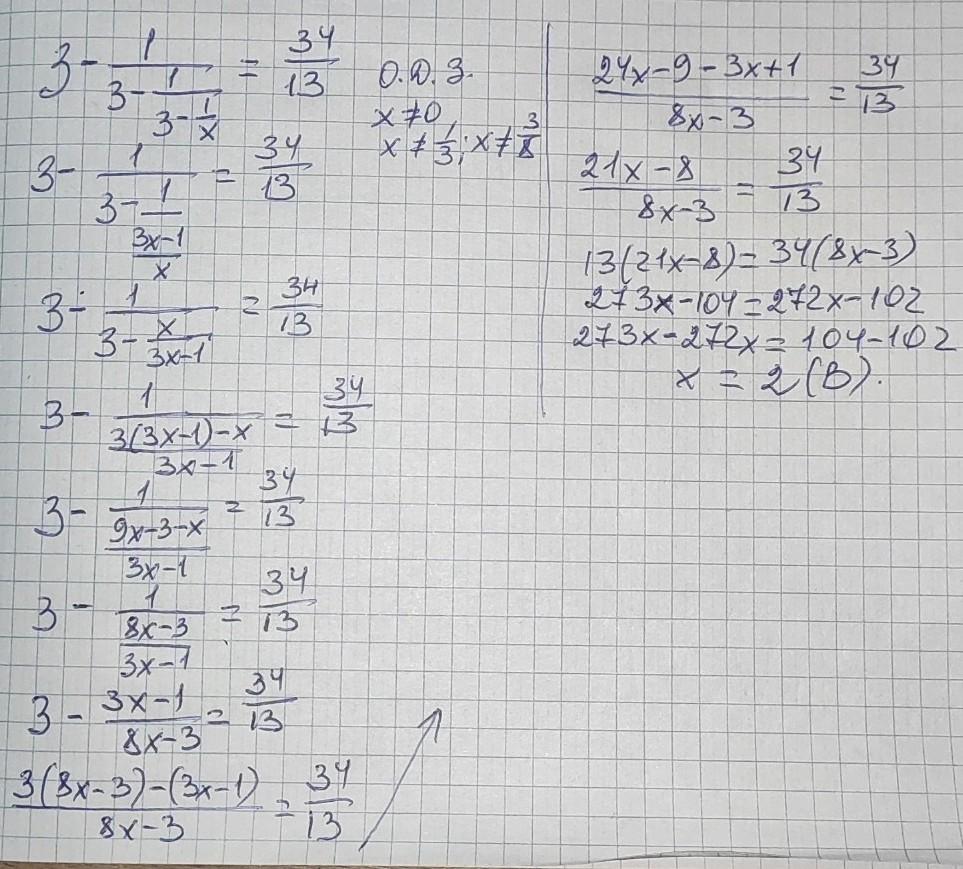 3 - 1/(3 - 1/(3 - 1/x)) = 34/13 О.Д.З.
x ≠ 0,
x ≠ 1/3; x ≠ 3/8
3 - 1/(3 - 1/((3x-1)/x)) = 34/13
3 - 1/(3 - x/(3x-1)) = 34/13
3 - 1/((3(3x-1)-x)/(3x-1)) = 34/13
3 - 1/((9x-3-x)/(3x-1)) = 34/13
3 - 1/((8x-3)/(3x-1)) = 34/13
3 - (3x-1)/(8x-3) = 34/13
(3(8x-3)-(3x-1))/(8x-3) = 34/13
(24x-9-3x+1)/(8x-3) = 34/13
(21x-8)/(8x-3) = 34/13
13(21x-8)=34(8x-3)
273x-104=272x-102
273x-272x=104-102
x = 2 (В).